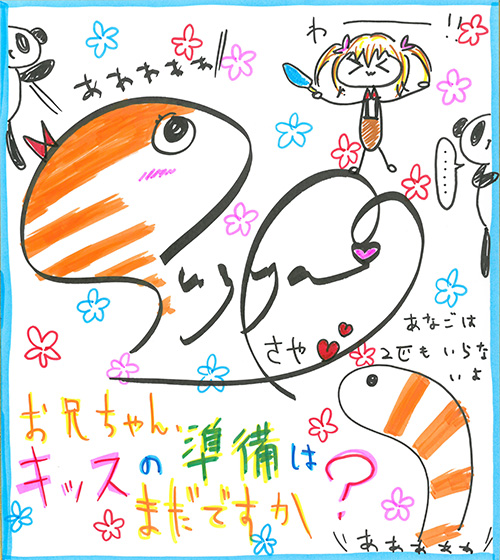 わーーーー!!
あぁわわわぁ
……
さや
あなごは
2匹もいらな
いよ
お兄ちゃん、
キッスの準備は
まだですか?
あわわわわ